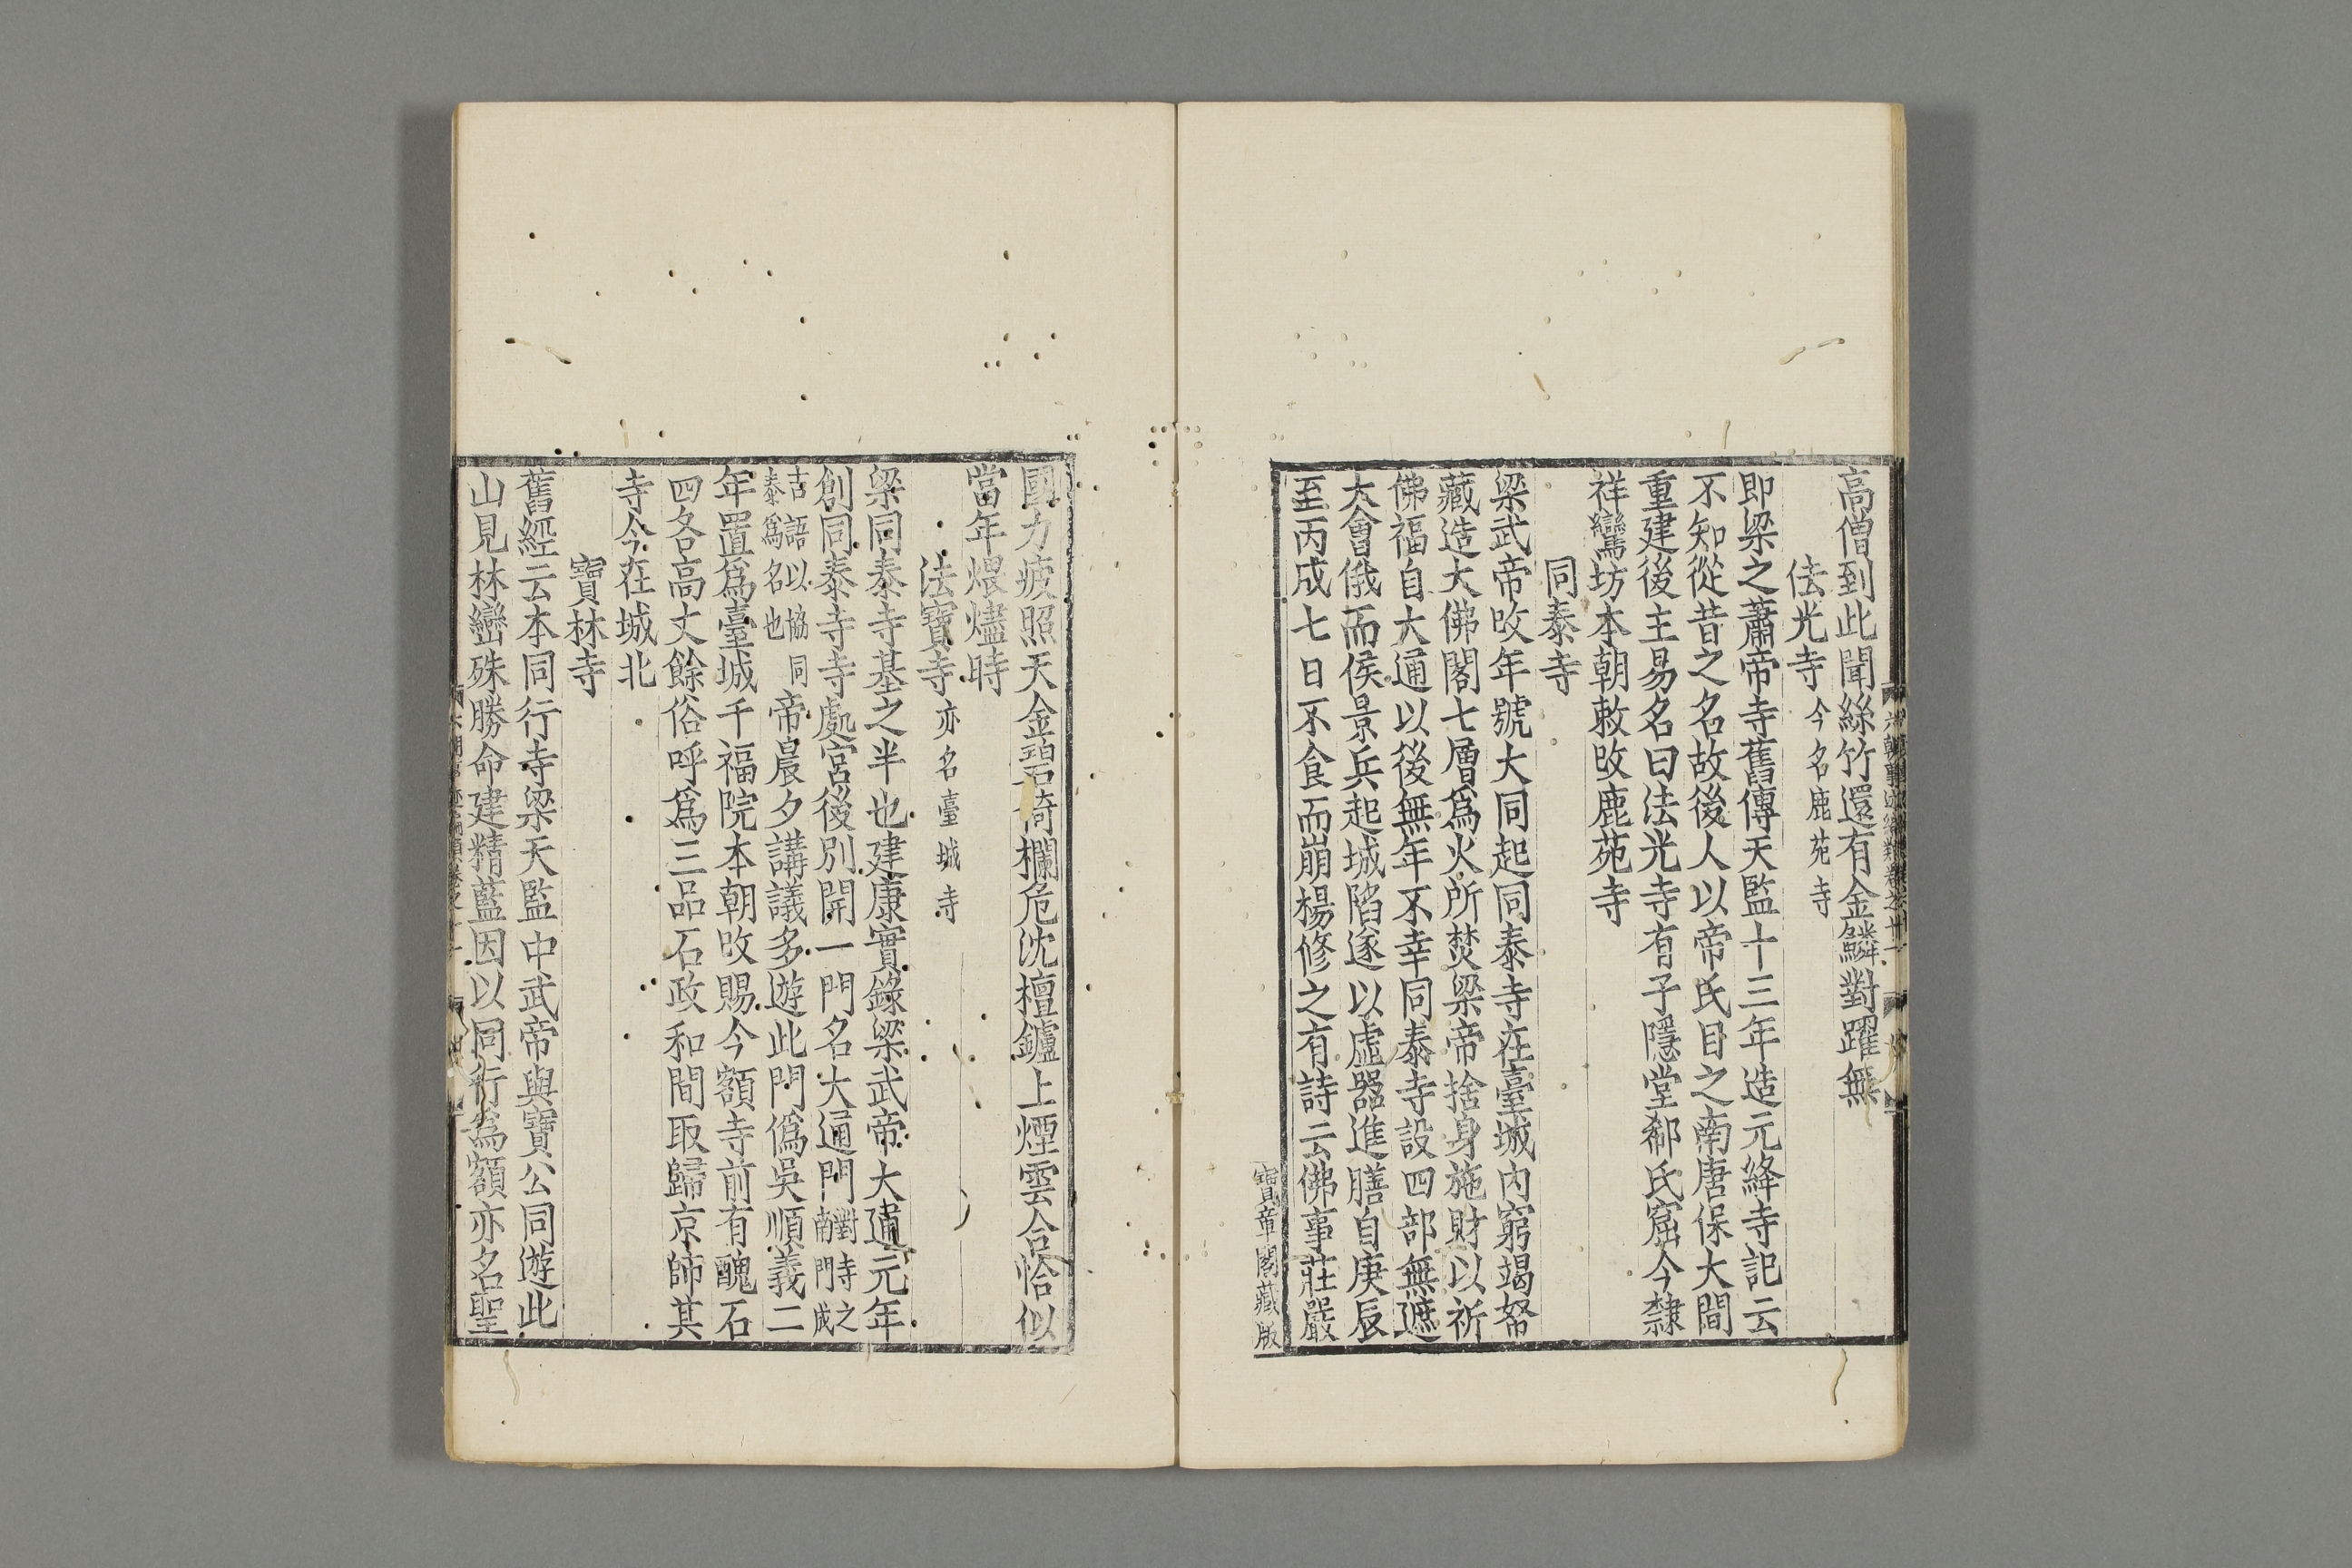 高僧到此聞絲竹還有金鱗對躍無
法光寺今名鹿苑寺
即梁之蕭帝寺舊傳天監十三年造元絳寺記云
不知從昔之名故後人以帝氏目之南唐保大間
重建後主易名曰法光寺有子隱堂郗氏窟今隸
祥鸞坊本朝敕改鹿苑寺
同泰寺
梁武帝改年號大同起同泰寺在臺城内窮竭帑
藏造大佛閣七層爲火所焚梁帝捨身施財以祈
佛福自大通以後無年不幸同泰寺設四部無遮
大會俄而侯景兵起城陷遂以虛器進膳自庚辰
至丙戌七日不食而崩楊修之有詩云佛事莊嚴
寶章閣藏版
國力疲照天金碧倚欄危沈檀鑪上煙雲合恰似
當年煨燼時
法寶寺亦名臺城寺
梁同泰寺基之半也建康實錄梁武帝大通元年
創同泰寺寺處宮後別開一門名大通門對寺之南門成
吉語以協同泰爲名也帝晨夕講議多遊此門僞吳順義二
年置爲臺城千福院本朝改賜今額寺前有醜石
四各高丈餘俗呼爲三品石政和間取歸京師其
寺今在城北
寶林寺
舊經云本同行寺梁天監中武帝與寶公同遊此
山見林巒殊勝命建精藍因以同行爲額亦名聖